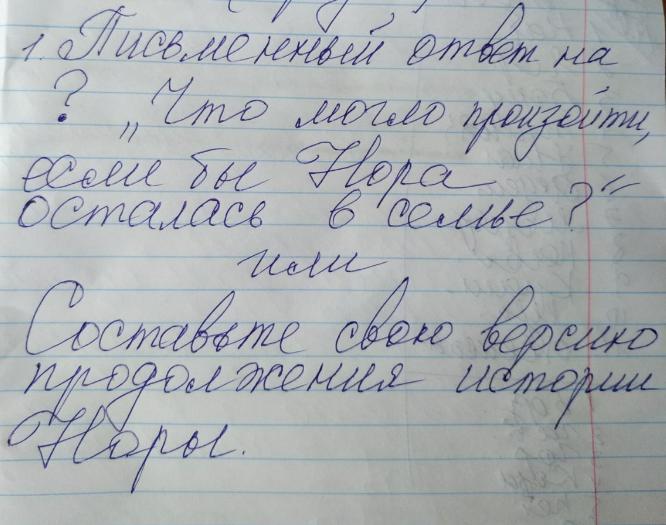 1. Письменный ответ на
? „Что могло произойти,
если бы Нора
осталась в семье?“
или
Составьте свою версию
продолжения истории
Норы.